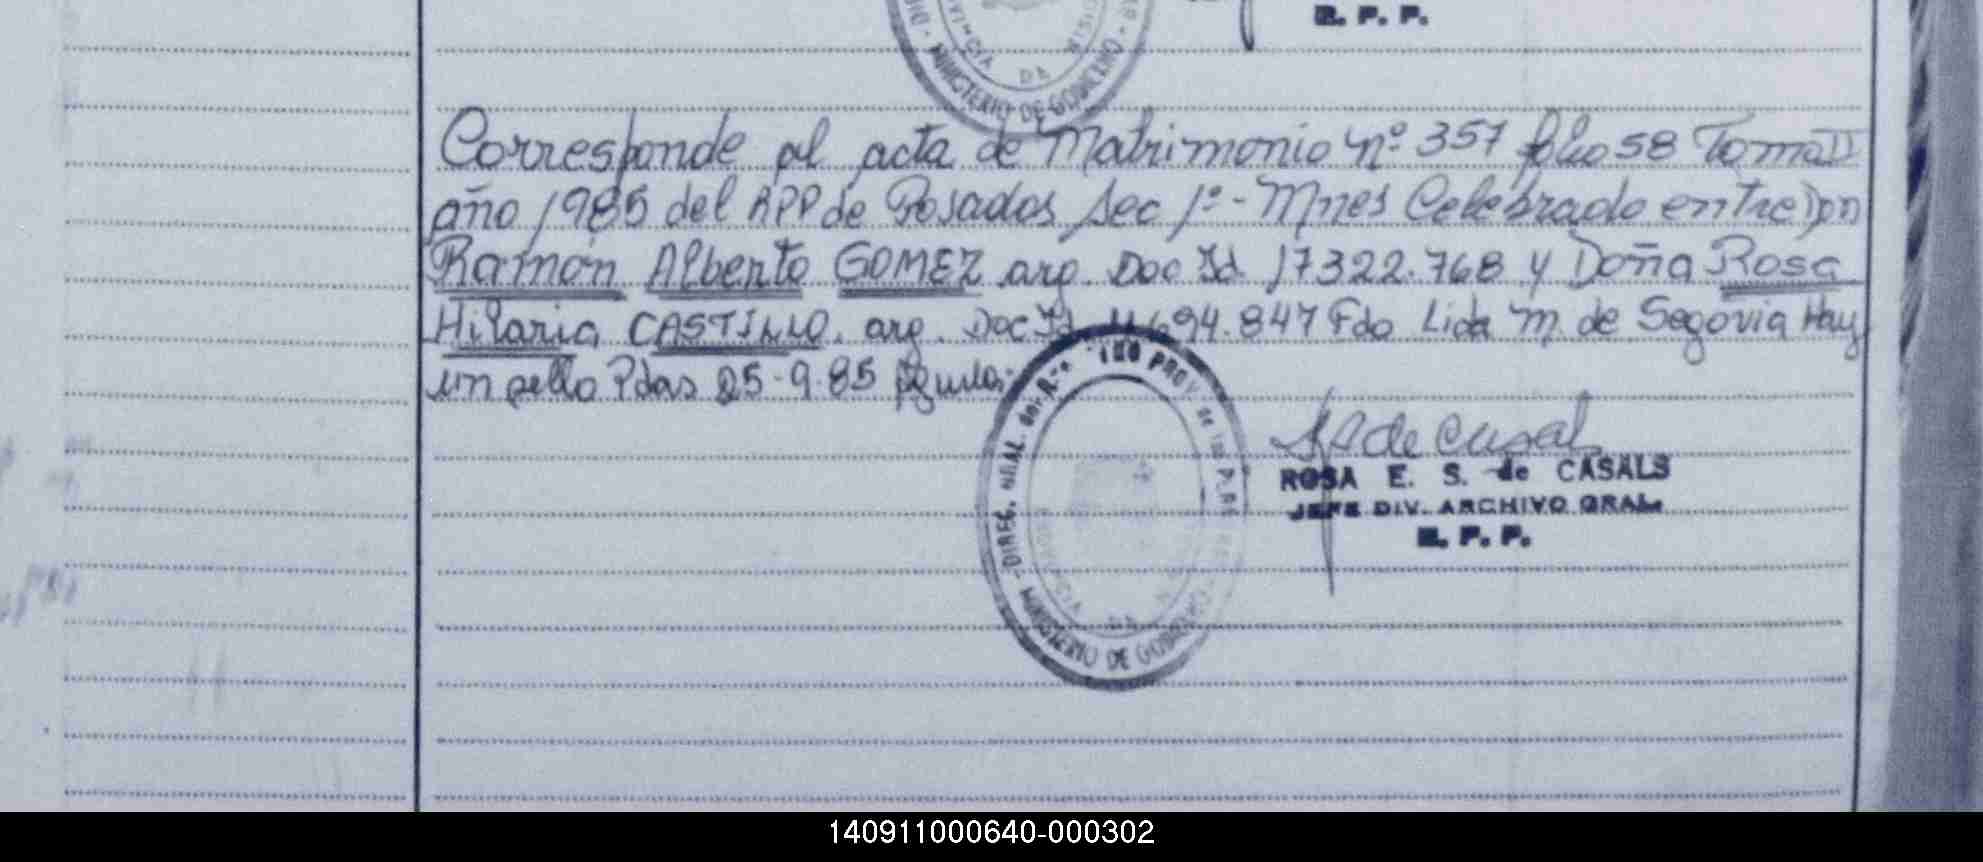 E. P. P.
MINISTERIO DE GOBIERNO
Corresponde al acta de Matrimonio nº 357 folio 58 Tomo II
año 1985 del RPP de Posadas Sec 1º - Mnes Celebrado entre Don
Ramón Alberto GOMEZ arg. Doc Id 17322.768 y Doña Rosa
Hilaria CASTILLO. arg. Doc Id 694.847 Fdo Lida M. de Segovia Hay
un sello Pdas 25-9-85
DIREC. GRAL. del R PROV de las P.
MINISTERIO DE GOBIERNO
S de Casals
ROSA E. S. de CASALS
JEFE DIV. ARCHIVO GRAL.
E. P. P.
140911000640-000302